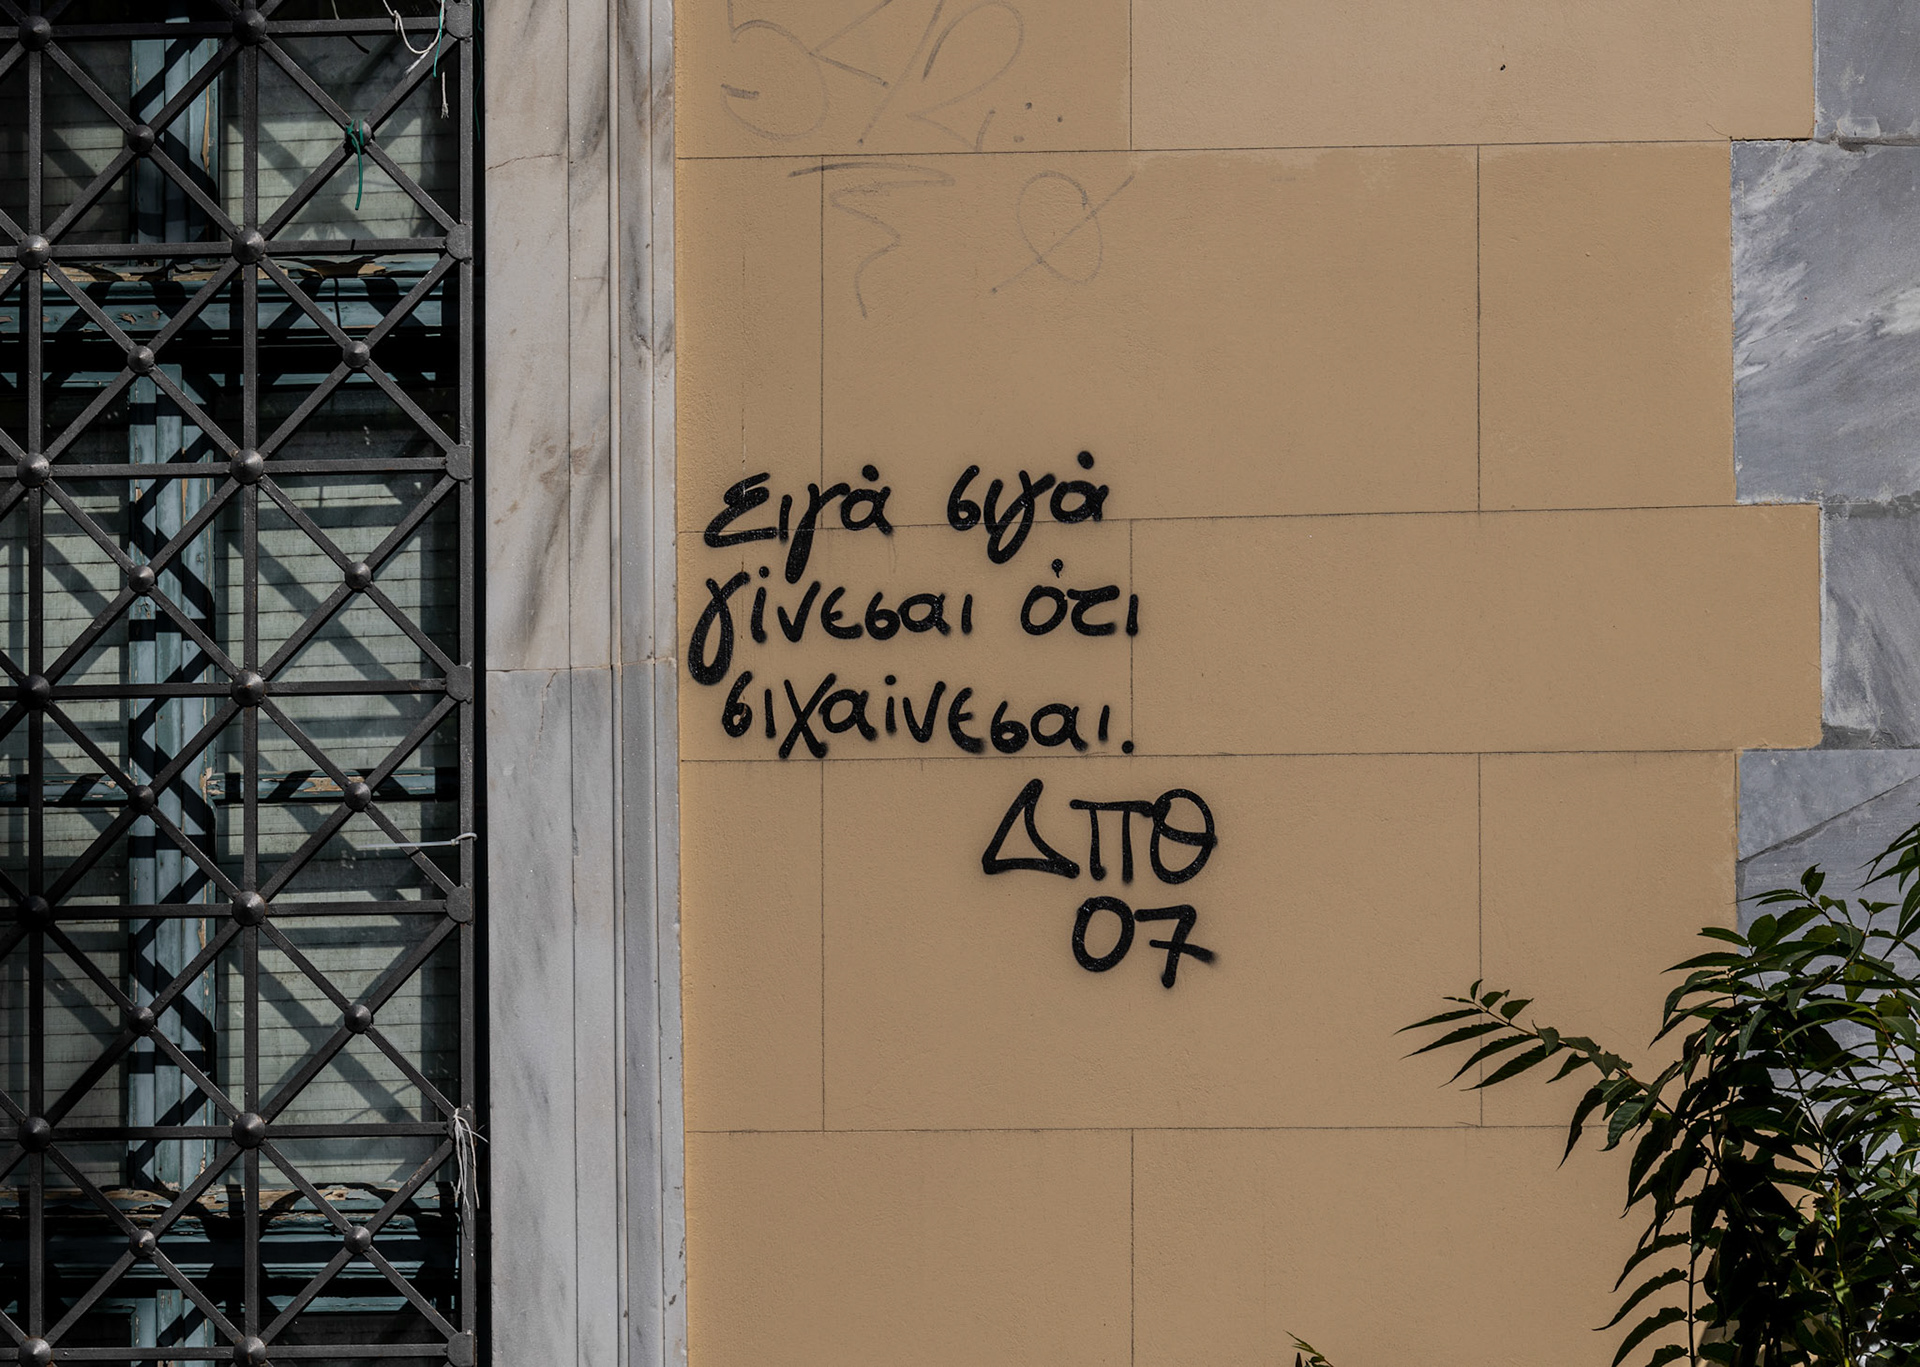 Σιγά σιγά
γίνεσαι ότι
σιχαίνεσαι.
ΔΠΘ
07